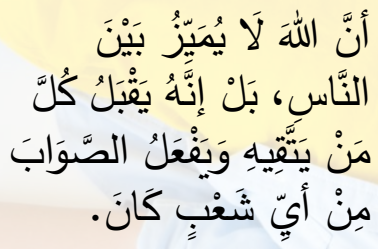 أنَّ اللهَ لَا يُمَيِّزُ بَيْنَ
النَّاسِ، بَلْ إنَّهُ يَقْبَلُ كُلَّ
مَنْ يَتَّقِيهِ وَيَفْعَلُ الصَّوَابَ
مِنْ أيِّ شَعْبٍ كَانَ.